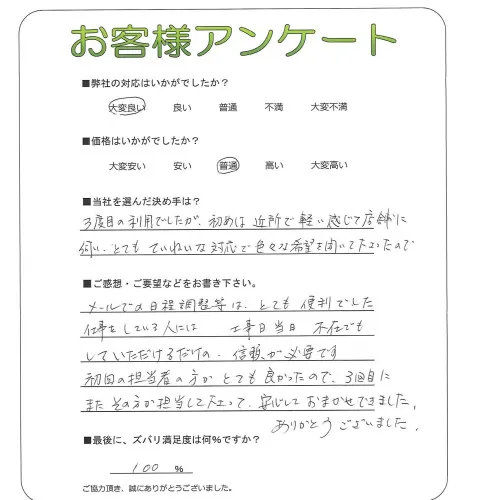 お客様アンケート
■弊社の対応はいかがでしたか？
大変良い 良い 普通 不満 大変不満
■価格はいかがでしたか？
大変安い 安い 普通 高い 大変高い
■当社を選んだ決め手は？
3度目の利用でしたが、初めは 近所で 軽い感じで店舗に
伺い、とても ていねいな対応で色々な希望を聞いて下さったので
■ご感想・ご要望などをお書き下さい。
メールでの日程調整等は、とても 便利でした
仕事をしている人には 工事日当日 不在でも
していただけるだけの、信頼が必要です
初回の担当者の方が とても良かったので、3回目に
また その方が担当して下さって、安心して おまかせできました。
ありがとうございました。
■最後に、ズバリ満足度は何%ですか？
100 %
ご協力頂き、誠にありがとうございました。